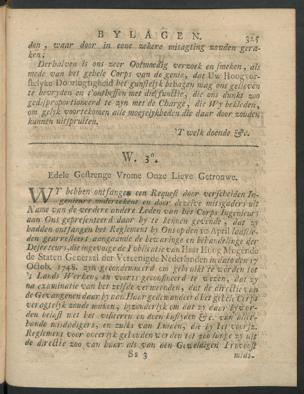 BYLAGEN. 325
den, waar door in eene zekere misagting zouden gera-
ken;
Derhalven is ons zeer Ootmoedig verzoek en smeken, als
mede van het geheele Corps van de genie, dat Uw Hoogvor-
stelyke Doorlugtigheid het gunstelyk behagen mag ons gelieven
te bevryden en t'ontheffen met die functie, die ons dunkt zoo
gedisproportioneerd te zyn met de Charge, die Wy bekleden,
om gelyk voortekomen alle mogelykheden die daar door zouden
kunnen uitspruiten.
'T welk doende &c.
W. 3°.
Edele Gestrenge Vrome Onze Lieve Getrouwe.
WY hebben ontfangen een Request door verscheiden In-
genieurs ondertekent en door dezelve misgaders uit
Naam van de verdere andere Leden van het Corps Ingenieurs
aan Ons gepresenteerd daar by te kennen gevende, dat zy
hadden ontfangen het Reglement by Ons op den 10 April
den gearresteert aangaande de bewaringe en behandelinge der
Deserteurs die ingevolge de Publicatie van Haar Hoog Mogende
de Staten Generaal der Vereenigde Nederlanden in dato den 17
Octob. 1748. zyn gecondemneerd om gebruikt te worden tot
's Lands Werken, als voorts geconfisceert te wezen, dat zy
na examinatie van het zelfde vermeenden, dat de directie van
de Gevangenen daar by aan Haar gedemandeerd het geheele Corps
veragtelyk zoude maken, byzonderlyk om dat zy daar by wer-
den belast met het visiteren en doen
bende misdadigers, en zulks van Luiden, die by het voorsz.
Reglement voor oneerlyk gehouden werden tot zoo lange zy uit
de directie zoo van haar als van den Geweldigen Provoost
Ss 3 mids-